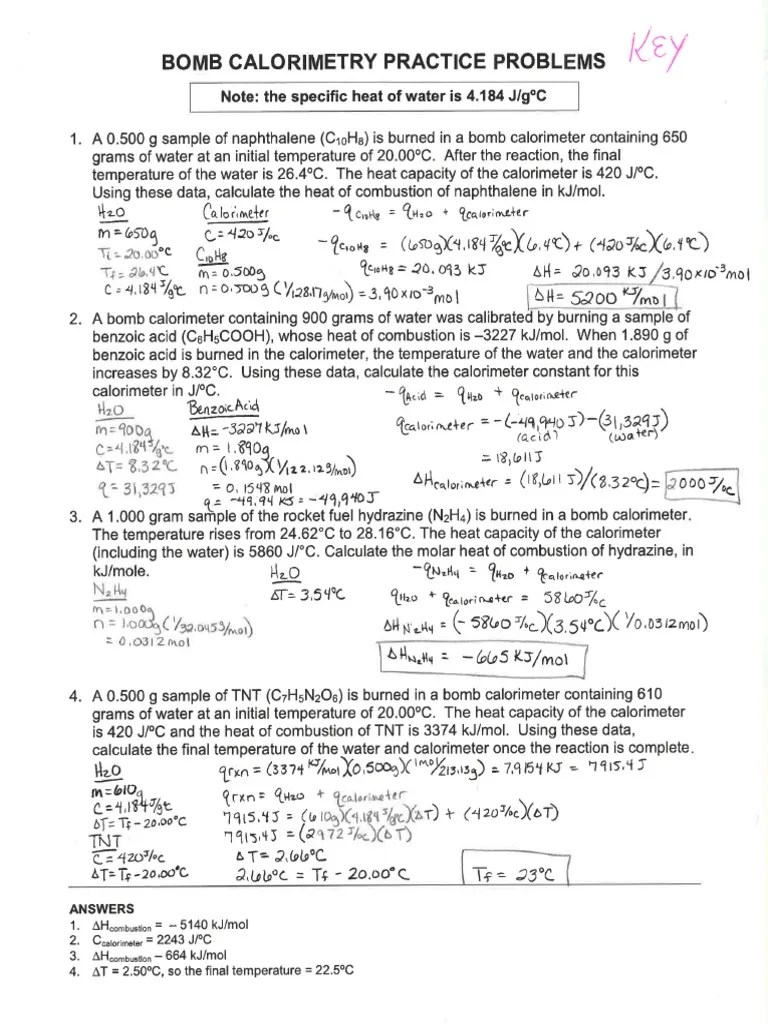 KEY
BOMB CALORIMETRY PRACTICE PROBLEMS
Note: the specific heat of water is 4.184 J/gºC
1. A 0.500 g sample of naphthalene (C₁₀H₈) is burned in a bomb calorimeter containing 650
grams of water at an initial temperature of 20.00ºC. After the reaction, the final
temperature of the water is 26.4ºC. The heat capacity of the calorimeter is 420 J/ºC.
Using these data, calculate the heat of combustion of naphthalene in kJ/mol.
H₂O Calorimeter -q C₁₀H₈ = q H₂O + q calorimeter
m = 650g C = 420 J/ºC
Ti = 20.00ºC C₁₀H₈ -q C₁₀H₈ = (650g)(4.184 J/gºC)(6.4ºC) + (420 J/ºC)(6.4ºC)
Tf = 26.4ºC m = 0.500g q C₁₀H₈ = 20.093 KJ ΔH = 20.093 KJ/3.90x10⁻³mol
C = 4.184 J/gºC n = 0.500g (1/128.17g/mol) = 3.90x10⁻³ mol ΔH = 5200 KJ/mol
2. A bomb calorimeter containing 900 grams of water was calibrated by burning a sample of
benzoic acid (C₆H₅COOH), whose heat of combustion is –3227 kJ/mol. When 1.890 g of
benzoic acid is burned in the calorimeter, the temperature of the water and the calorimeter
increases by 8.32ºC. Using these data, calculate the calorimeter constant for this
calorimeter in J/ºC.
-q Acid = q H₂O + q calorimeter
H₂O Benzoic Acid
m = 900g ΔH = -3227 KJ/mol q calorimeter = -(-49,940 J) - (31,329 J)
C = 4.184 J/gºC m = 1.890g (acid) (water)
ΔT = 8.32ºC n = (1.890g)(1/122.123g/mol) = 18,611 J
q = 31,329 J = 0.1548 mol ΔH calorimeter = (18,611 J)/(8.32ºC) = 2000 J/ºC
q = -49.94 KJ = -49,940 J
3. A 1.000 gram sample of the rocket fuel hydrazine (N₂H₄) is burned in a bomb calorimeter.
The temperature rises from 24.62ºC to 28.16ºC. The heat capacity of the calorimeter
(including the water) is 5860 J/ºC. Calculate the molar heat of combustion of hydrazine, in
kJ/mole.
H₂O -q N₂H₄ = q H₂O + q calorimeter
N₂H₄ ΔT = 3.54ºC q H₂O + q calorimeter = 5860 J/ºC
m = 1.000g
n = 1.000g (1/32.045g/mol) ΔH N₂H₄ = (-5860 J/ºC)(3.54ºC)(1/0.0312mol)
= 0.0312 mol
ΔH N₂H₄ = -665 KJ/mol
4. A 0.500 g sample of TNT (C₇H₅N₂O₆) is burned in a bomb calorimeter containing 610
grams of water at an initial temperature of 20.00ºC. The heat capacity of the calorimeter
is 420 J/ºC and the heat of combustion of TNT is 3374 kJ/mol. Using these data,
calculate the final temperature of the water and calorimeter once the reaction is complete.
H₂O q rxn = (3374 KJ/mol)(0.500g)(1mol/213.13g) = 7.9154 KJ = 7915.4 J
m = 610g q rxn = q H₂O + q calorimeter
C = 4.184 J/gº 7915.4 J = (610g)(4.184 J/gºC)(ΔT) + (420 J/ºC)(ΔT)
ΔT = Tf - 20.00ºC 7915.4 J = (2972 J/ºC)(ΔT)
TNT
C = 420 J/ºC ΔT = 2.66ºC
ΔT = Tf - 20.00ºC 2.66ºC = Tf - 20.00ºC Tf = 23ºC
ANSWERS
1. ΔHcombustion = – 5140 kJ/mol
2. Ccalorimeter = 2243 J/ºC
3. ΔHcombustion – 664 kJ/mol
4. ΔT = 2.50ºC, so the final temperature = 22.5ºC